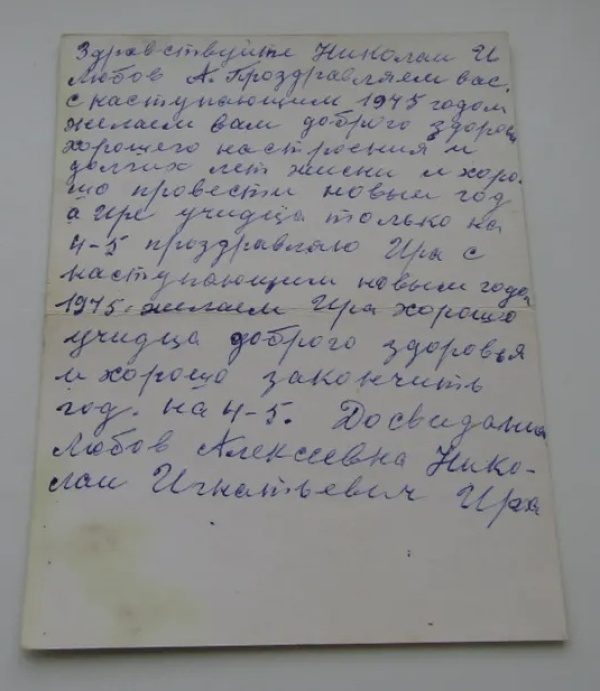 Здравствуйте Николаи И
Любов А. Проздравляем вас.
с наступающим 1975 годом
желаем вам доброго здоровя
хорошего настроения и
долгих лет жисни и хоро-
шо провести новыи год
а Ире учидца только на
4-5 проздравляю Ира с
наступающим новым годом
1975. желаем Ира хорошо
учидца доброго здоровья
и хорошо закончить
год. на 4-5. Досвидания
Любов Алексеевна Нико-
лаи Игнатьевич Ира